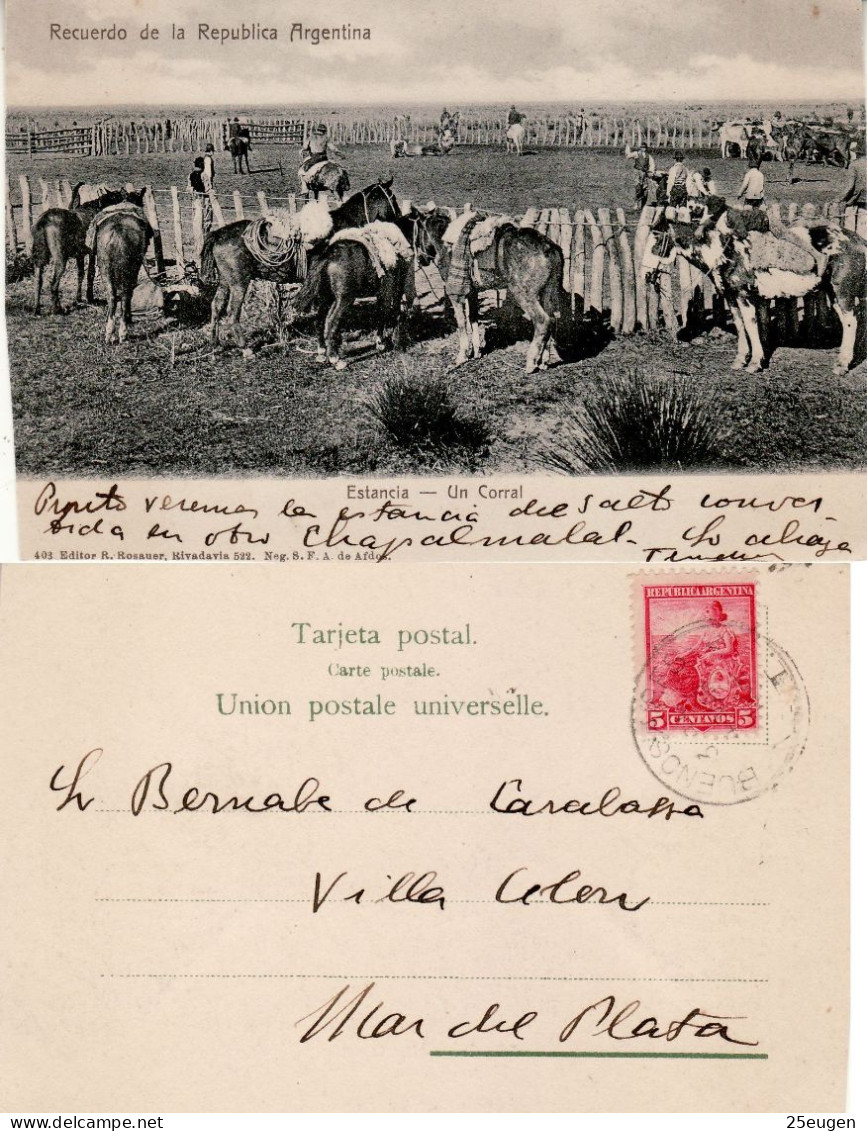 Recuerdo de la Republica Argentina
Estancia — Un Corral
veremos la estancia del Salto conver
tida en otro Chapalmalal. Lo abraza
403 Editor R. Rosauer, Rivadavia 522. Neg. S. F. A. de Afdos.
Tarjeta postal.
Carte postale.
Union postale universelle.
REPUBLICA ARGENTINA
5 CENTAVOS 5
BUENOS
Sr Bernabe de
Villa Colon
Mar del Plata
25eugen